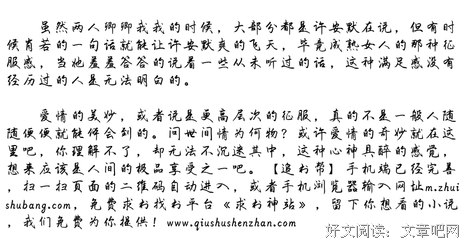 虽然两人卿卿我我的时候，大部分都是许安默在说，但有时
候肖若的一句话就能让许安默爽的飞天，毕竟成熟女人的那种征
服感，当她羞羞答答的说着一些从未听过的话，这种满足感没有
经历过的人是无法明白的。
爱情的美妙，或者说是更高层次的征服，真的不是一般人随
随便便就能体会到的。问世间情为何物？或许爱情的奇妙就在这
里吧，你理解不了，却无法不沉迷其中，这种心神具醉的感觉，
想来应该是人间的极品享受之一吧。【追书帮】手机端已经完善
，扫一扫页面的二维码自动进入，或者手机浏览器输入网址m.zhui
shubang.com，免费求书找书平台《求书神站》，留下你想看的小说
，我们免费为你提供！www.qiushushenzhan.com
好文阅读：文章吧网